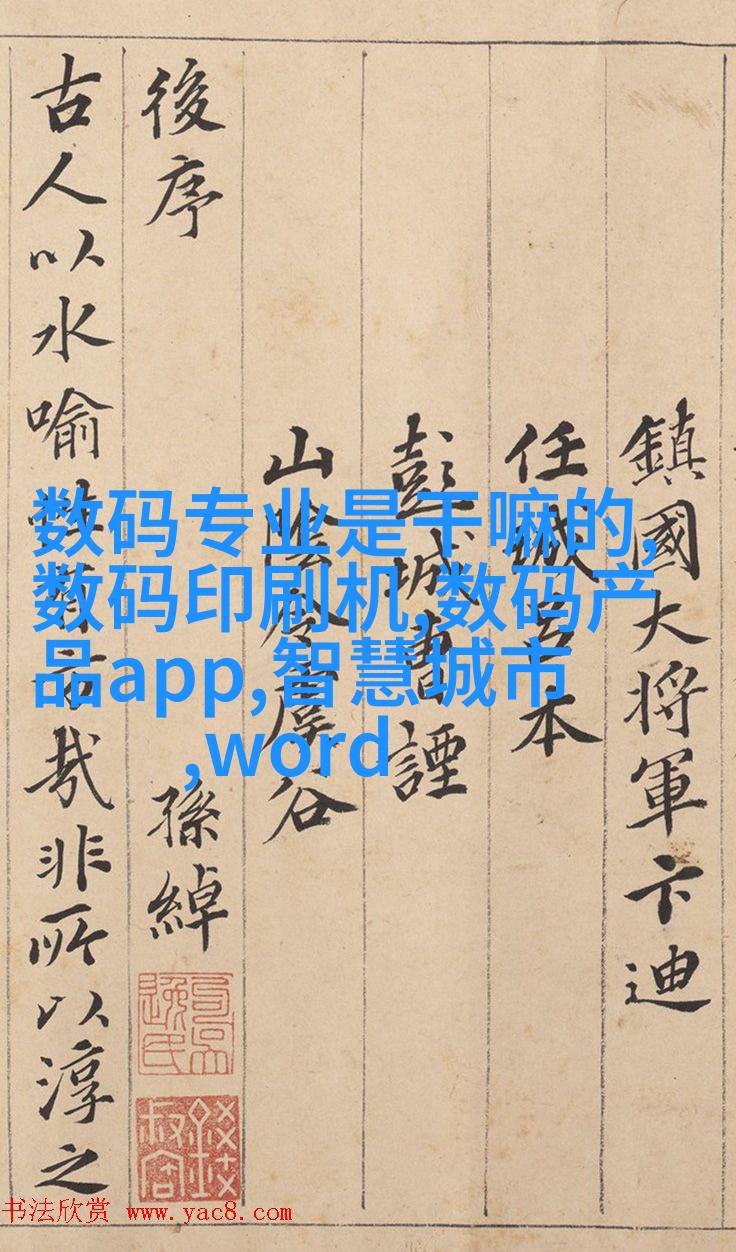 鎮國大將軍卞迪
任城呂本
彭城曹諲
山陰令虞谷
後序
孫綽
古人以水喻哉非所以淳之
数码专业是干嘛的,
数码印刷机,数码产
品app,智慧城市
,word
书法欣赏 www.yac8.com